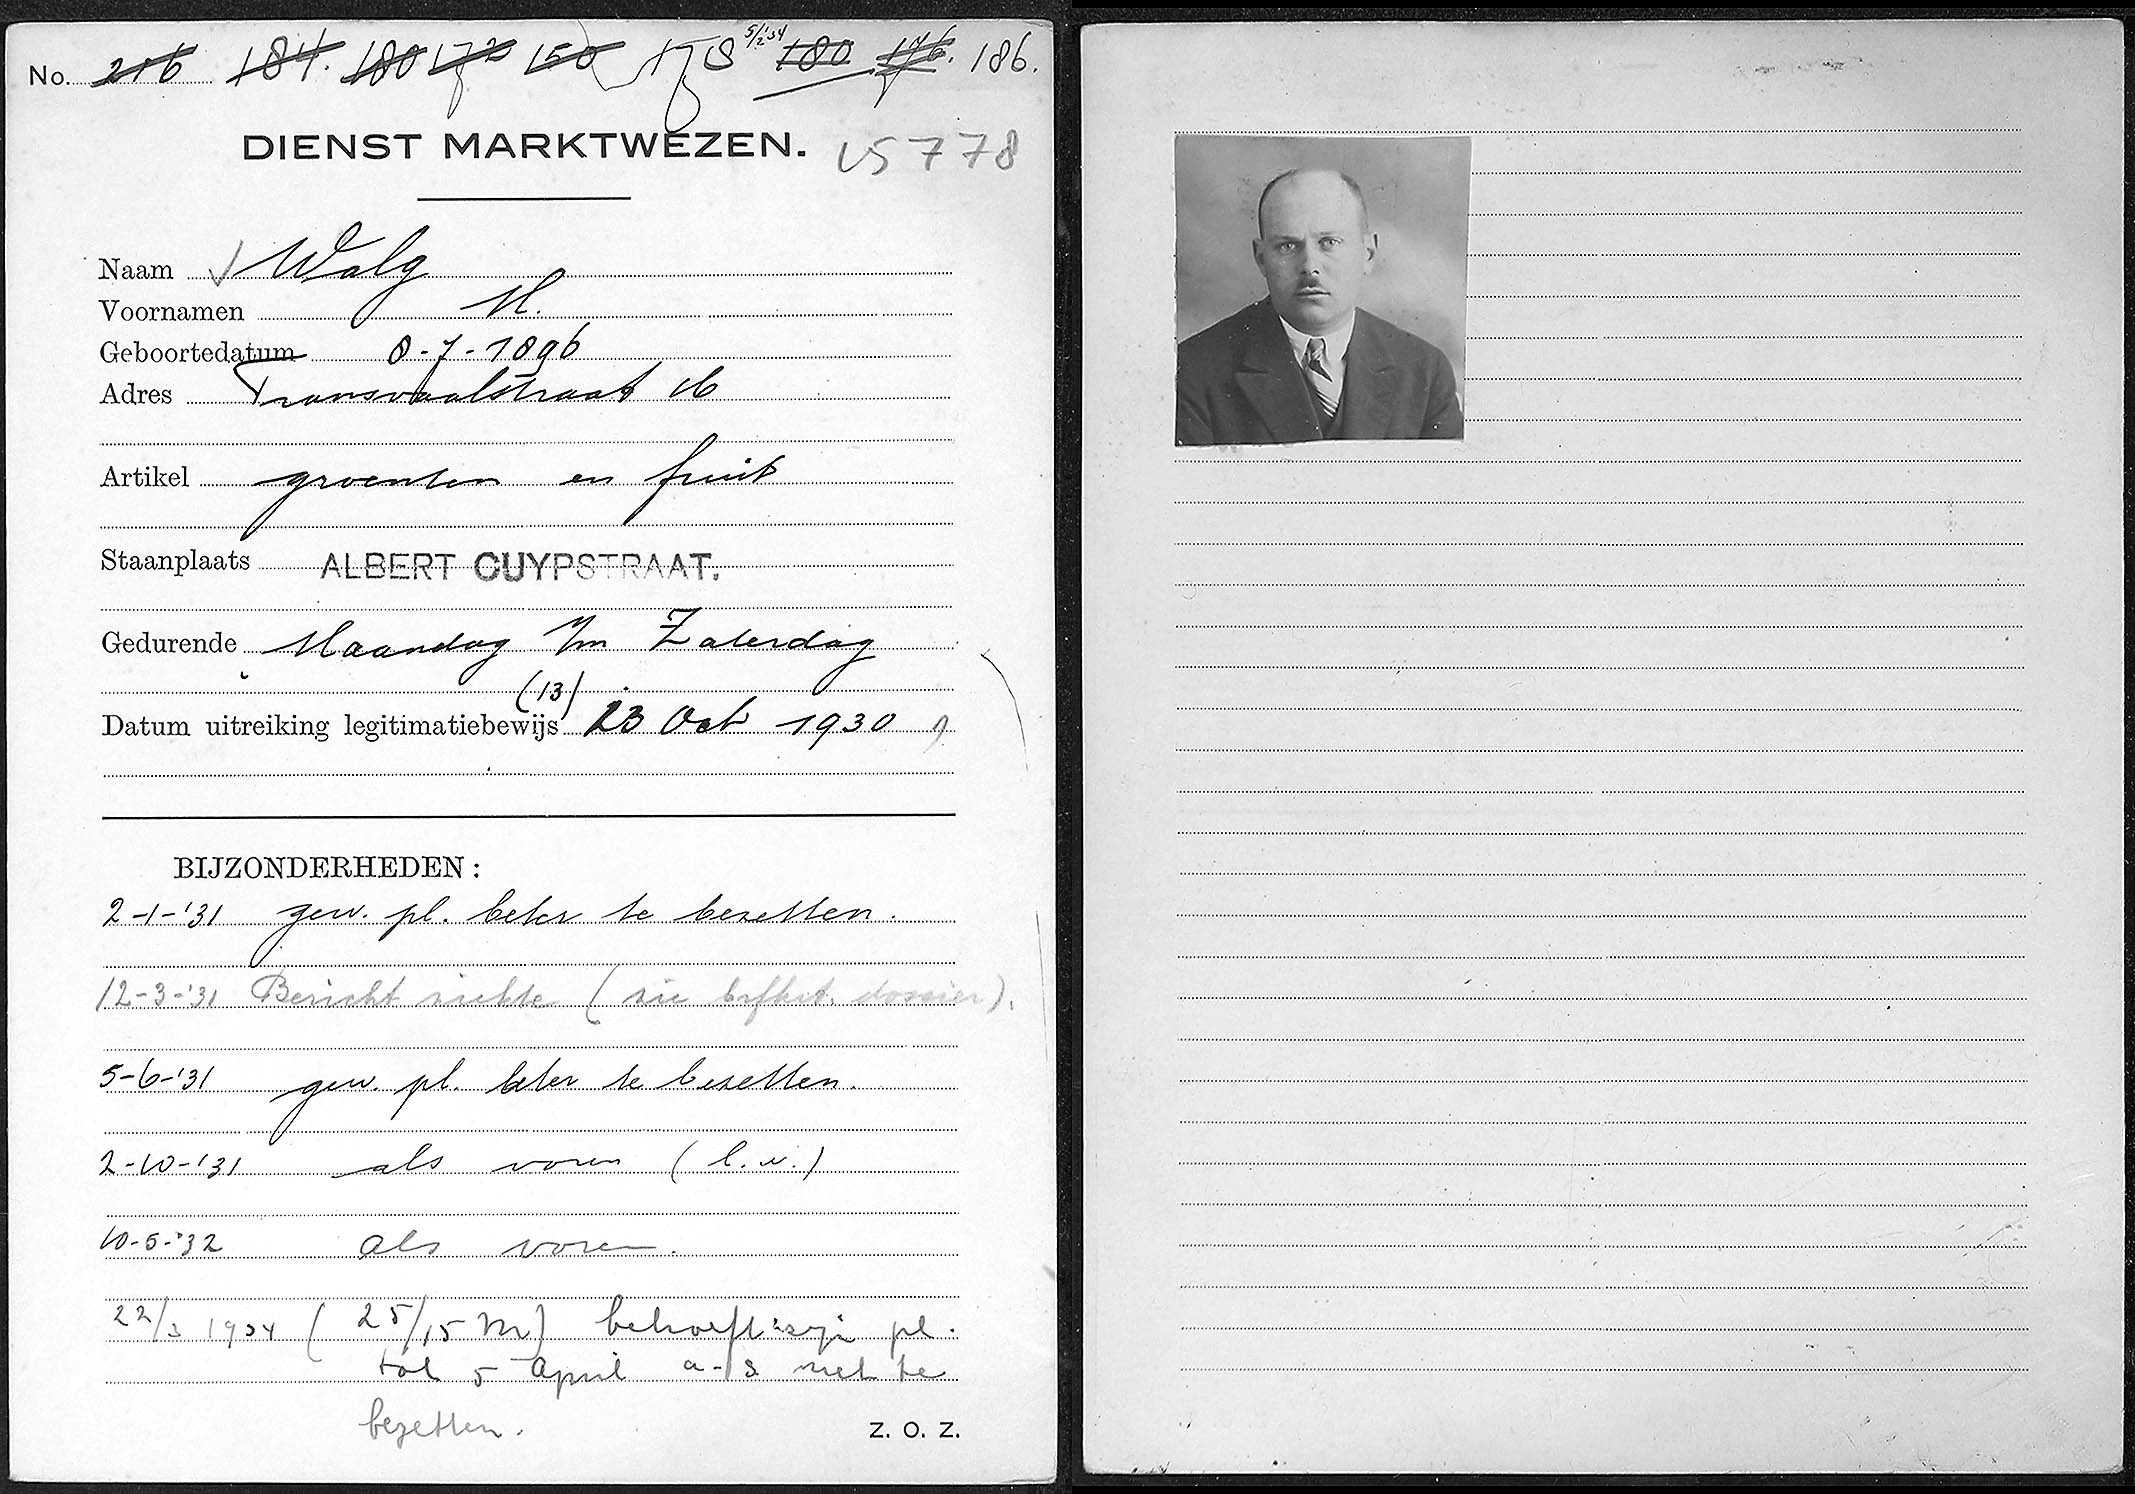 No. 216 184. 180 172 150 178 5/2 '34 180 176. 186.
DIENST MARKTWEZEN.
15778
Naam Walg
Voornamen M.
Geboortedatum 8-7-1896
Adres Transvaalstraat 16
Artikel groenten en fruit
Staanplaats ALBERT CUYPSTRAAT.
Gedurende Maandag t/m Zaterdag
(13)
Datum uitreiking legitimatiebewijs 23 Oct 1930
BIJZONDERHEDEN:
2-1-'31 gew. pl. beter te bezetten.
12-3-'31 Bericht ziekte (zie dossier).
5-6-'31 gew. pl. beter te bezetten.
2-10-'31 als voren (l.w.)
10-5-'32 als voren.
22/3 1934 (25/15 M) behoeft zijn pl.
tot 5 April a.s. niet te
bezetten.
Z. O. Z.